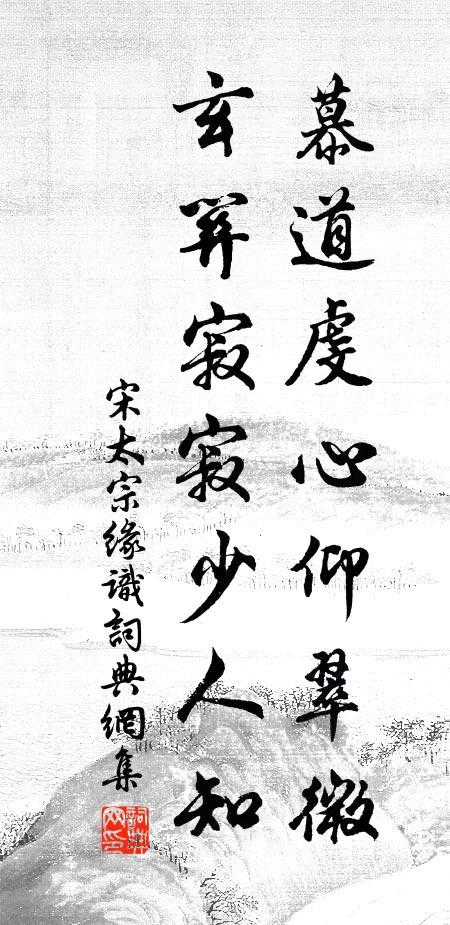 慕道虔心仰翠微
玄關寂寂少人知
宋太宗緣識詞典網集
詞典网印